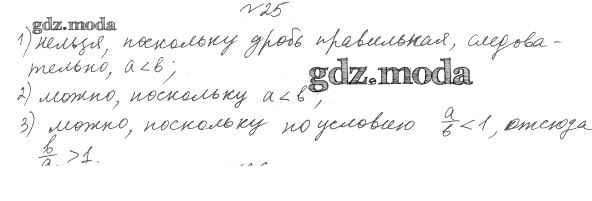 №25
gdz.moda
1) нельзя, поскольку дробь правильная, следова-
тельно, a<b;
gdz.moda
2) можно, поскольку a<b,
3) можно, поскольку по условию a/b <1, отсюда
b/a >1.